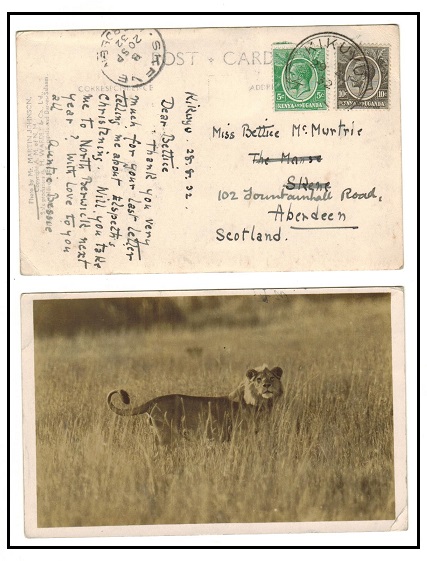 POST CARD
CORRESPONDENCE
ADDRESS
Kikuyu. 28.8.32.
Dear Bettice
Thank you very
much for your last letter
telling me about Elspeth's
christening. Will you take
me to North Berwick next
year? With love to you
all
Auntie Bessie
SKENE
KIKUYU
5c
5c
KENYA AND UGANDA
10c
10c
KENYA AND UGANDA
Miss Bettice McMurtrie
The Manse
Skene
102 Fountainhall Road,
Aberdeen
Scotland.